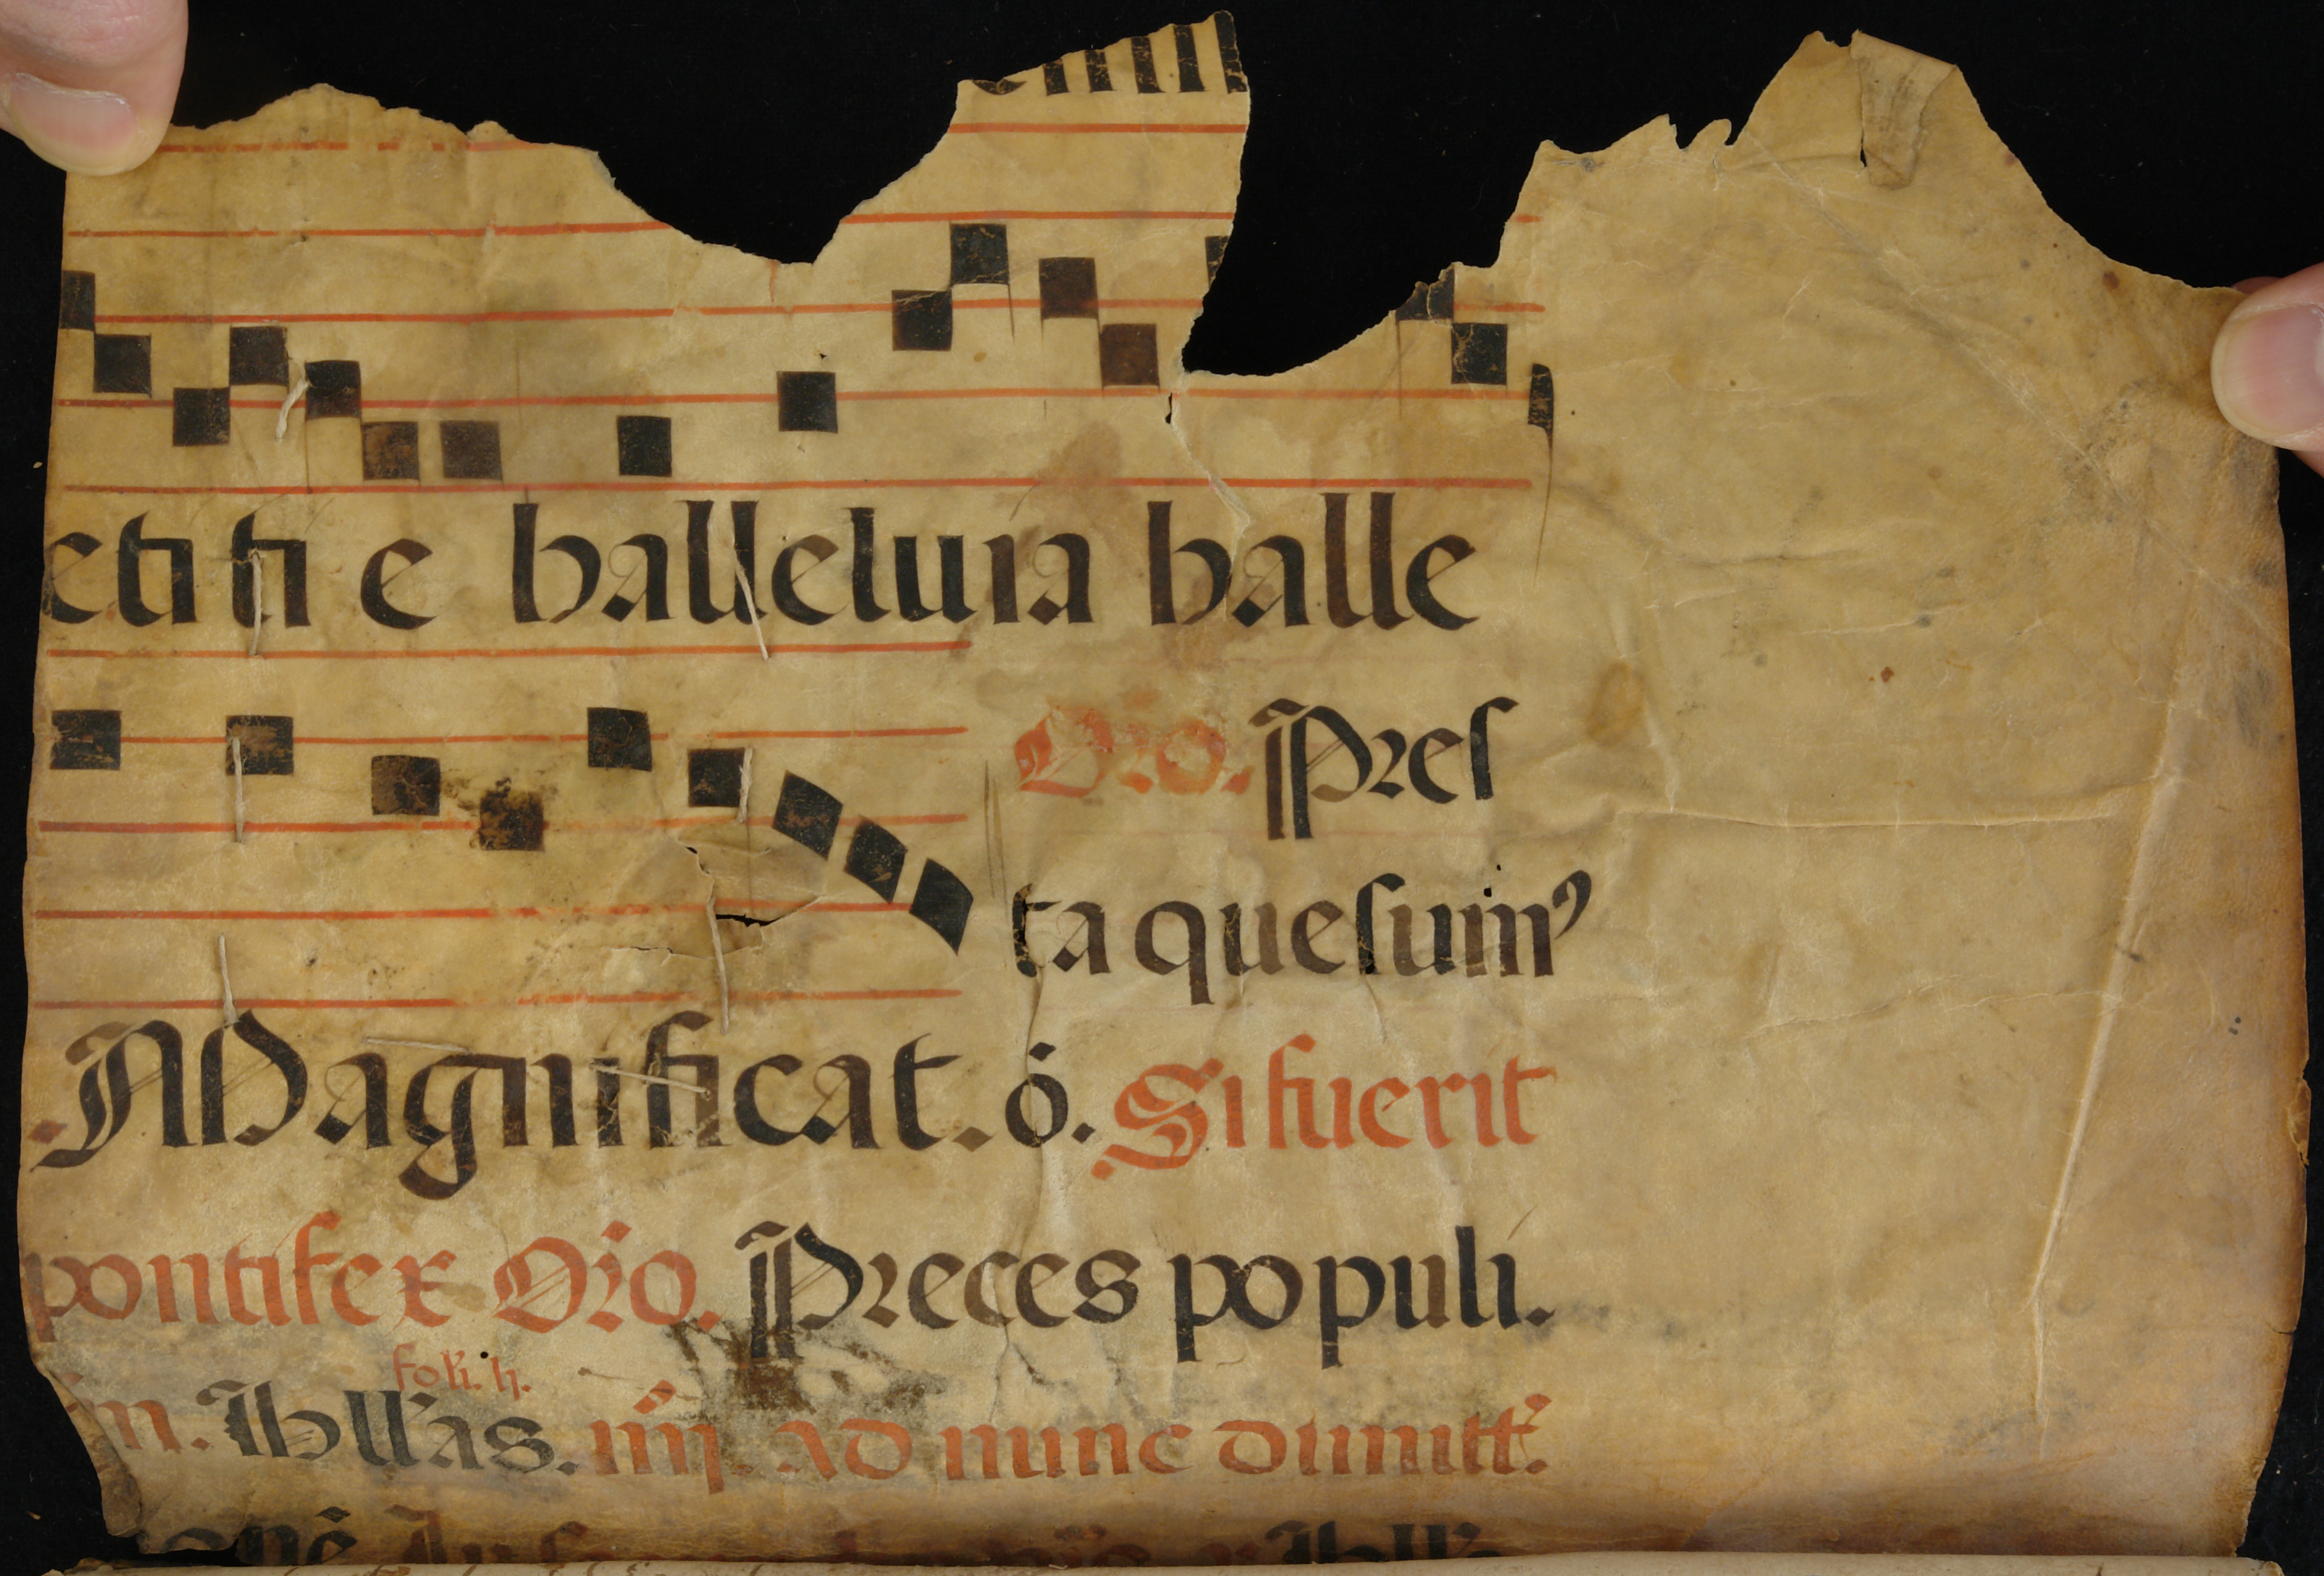 etiti e halleluia halle
Oro. Pres
ta quesum⁹
Magnificat. ó. Si fuerit
pontifex Oro. Preces populi.
foli. ij.
in. Hll'as. iiij. ad nunc dimitt.